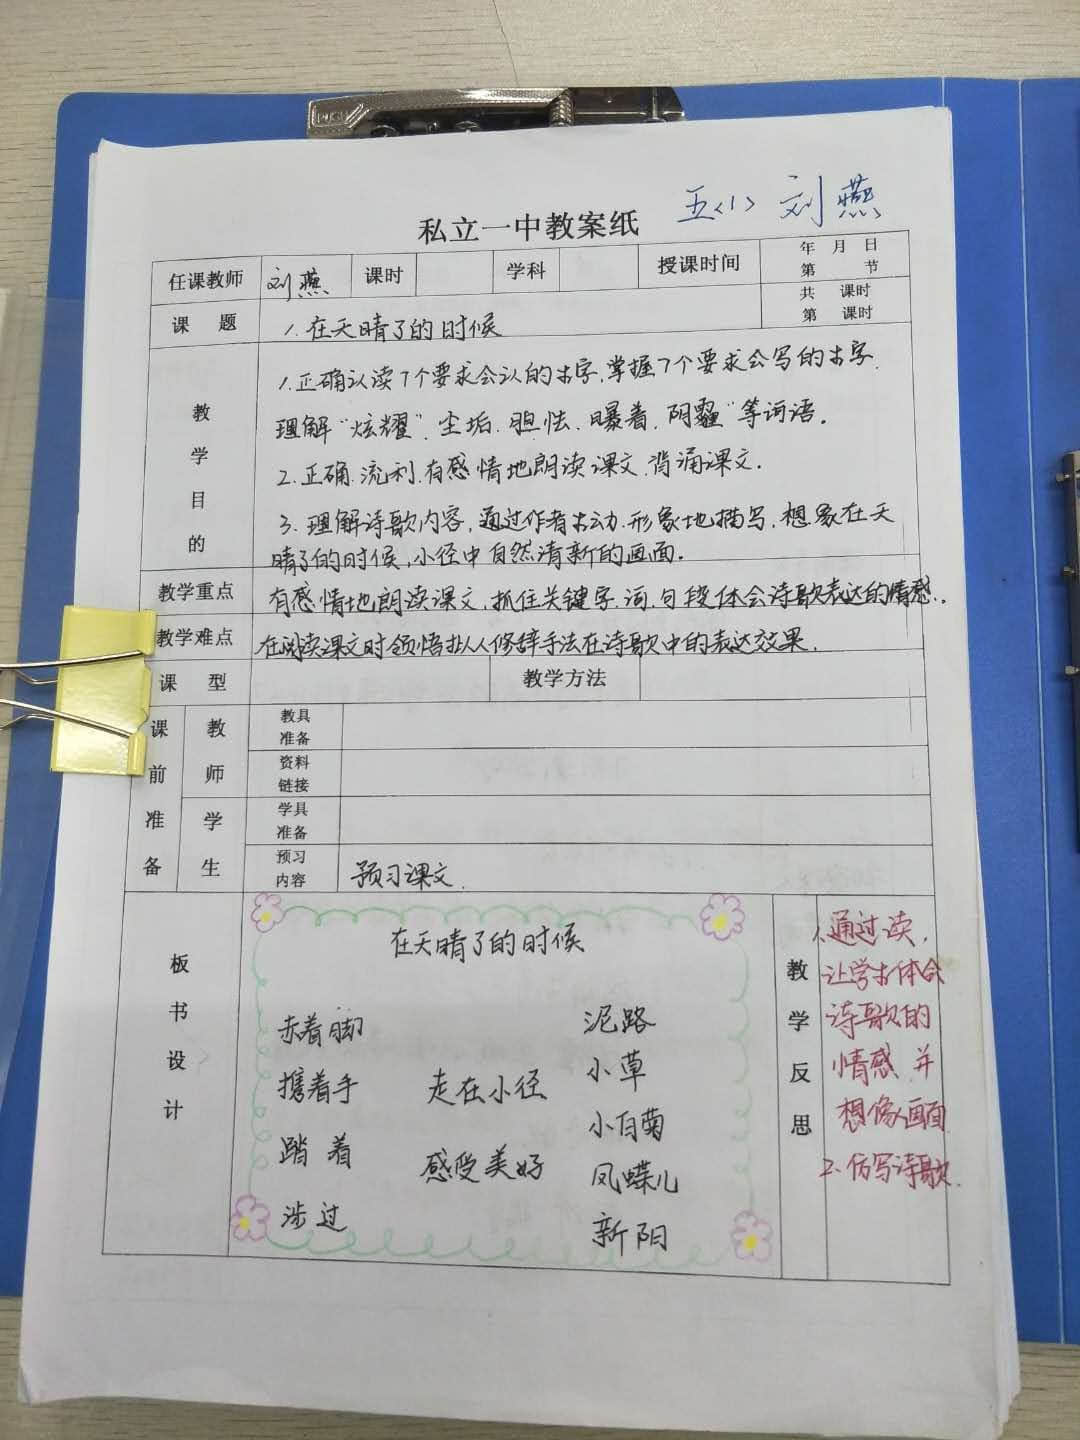 五<1> 刘燕
私立一中教案纸
任课教师 刘燕 课时 学科 授课时间 年 月 日
第 节
课 题 1.在天晴了的时候 共 课时
第 课时
教学目的
1.正确认读7个要求会认的生字,掌握7个要求会写的生字.
理解“炫耀”、尘垢、胆怯、曝着、阴霾”等词语.
2.正确.流利.有感情地朗读课文.背诵课文.
3.理解诗歌内容,通过作者生动.形象地描写,想象在天
晴了的时候,小径中自然清新的画面.
教学重点 有感情地朗读课文,抓住关键字.词.句段体会诗歌表达的情感.
教学难点 在阅读课文时领悟拟人修辞手法在诗歌中的表达效果.
课 型 教学方法
课前准备
教师
教具准备
资料链接
学生
学具准备
预习内容 预习课文.
板书设计
在天晴了的时候
赤着脚 泥路
携着手 走在小径 小草
小白菊
踏着 感受美好 凤蝶儿
涉过 新阳
教学反思
1.通过读,
让学生体会
诗歌的
情感.并
想像画面
2.仿写诗歌.